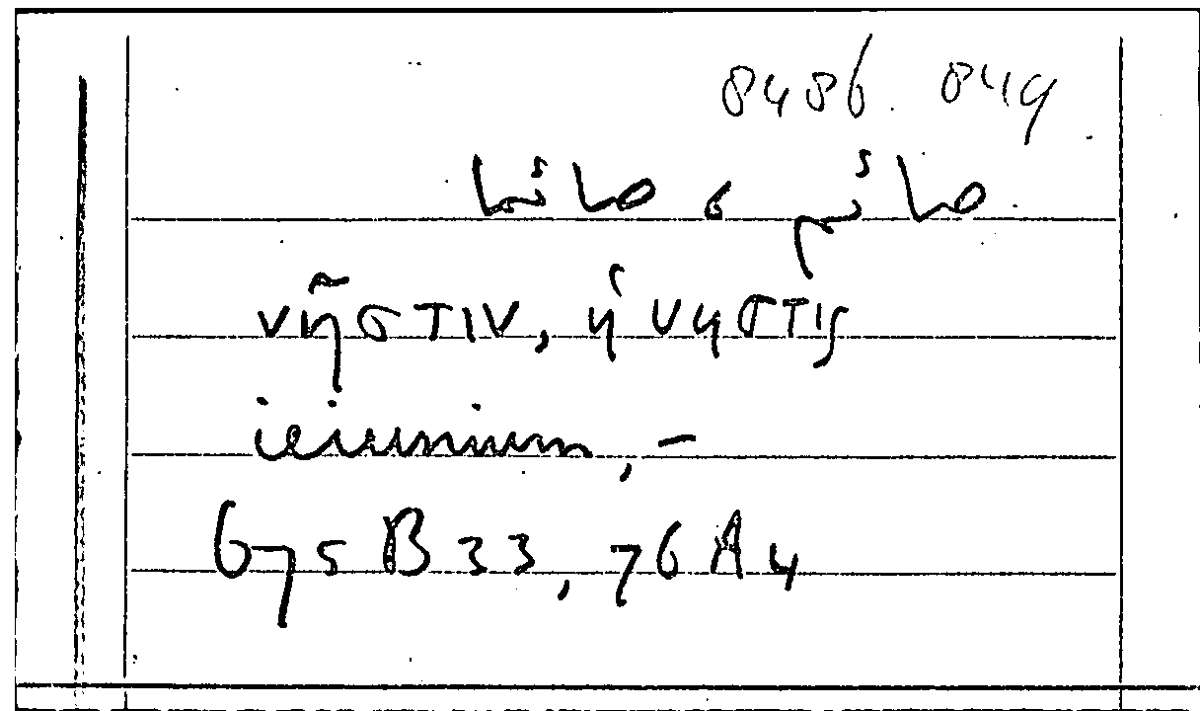 8486. 849
صائم ، صائما
νῆστιν, ἡ νηστις
ieiunium, –
675 B 33, 76 A 4